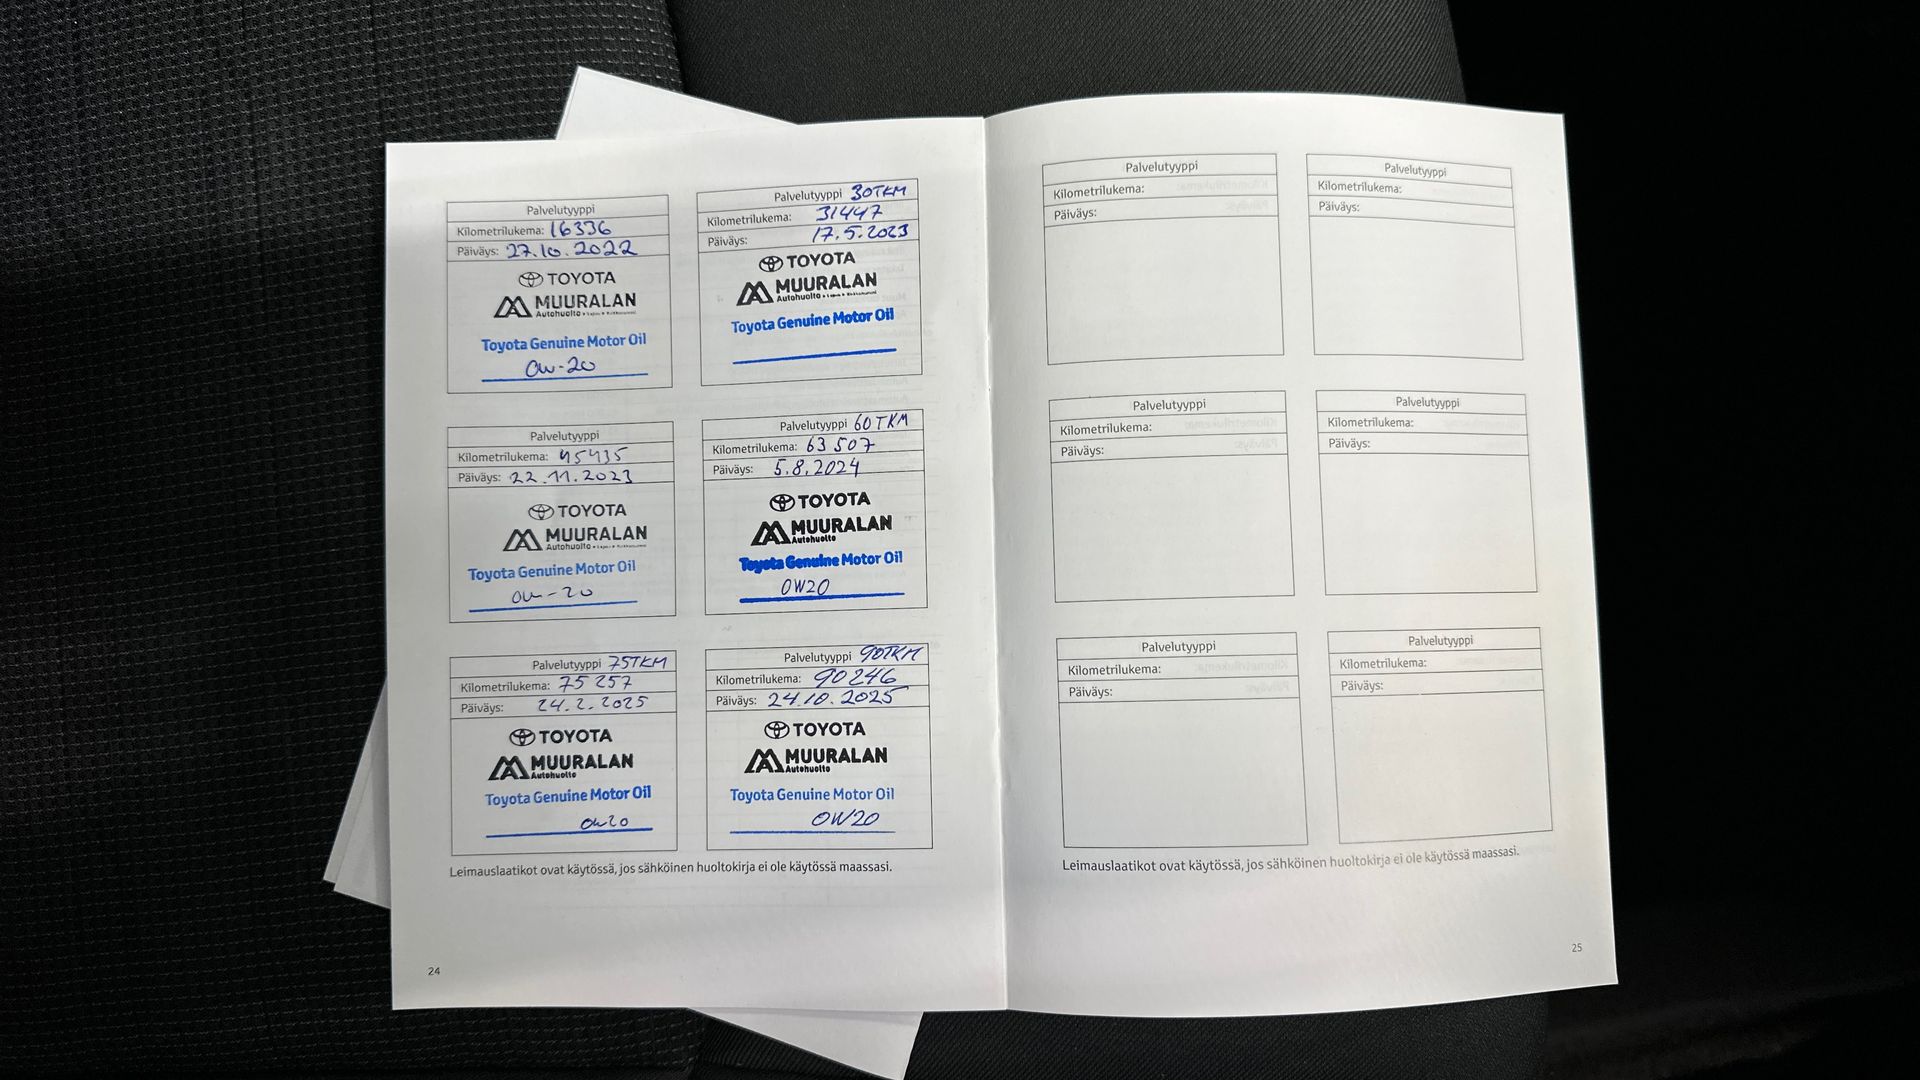 Palvelutyyppi
Kilometrilukema: 16336
Päiväys: 27.10.2022
TOYOTA
MUURALAN
Autohuolto
Toyota Genuine Motor Oil
0W-20
Palvelutyyppi 30TKM
Kilometrilukema: 31447
Päiväys: 17.5.2023
TOYOTA
MUURALAN
Autohuolto
Toyota Genuine Motor Oil
Palvelutyyppi
Kilometrilukema: 45435
Päiväys: 22.11.2023
TOYOTA
MUURALAN
Autohuolto
Toyota Genuine Motor Oil
0W-20
Palvelutyyppi 60TKM
Kilometrilukema: 63 507
Päiväys: 5.8.2024
TOYOTA
MUURALAN
Autohuolto
Toyota Genuine Motor Oil
0W20
Palvelutyyppi 75TKM
Kilometrilukema: 75 257
Päiväys: 24.2.2025
TOYOTA
MUURALAN
Autohuolto
Toyota Genuine Motor Oil
0W20
Palvelutyyppi 90TKM
Kilometrilukema: 90246
Päiväys: 24.10.2025
TOYOTA
MUURALAN
Autohuolto
Toyota Genuine Motor Oil
0W20
Leimauslaatikot ovat käytössä, jos sähköinen huoltokirja ei ole käytössä maassasi.
24
Palvelutyyppi
Kilometrilukema:
Päiväys:
Palvelutyyppi
Kilometrilukema:
Päiväys:
Palvelutyyppi
Kilometrilukema:
Päiväys:
Palvelutyyppi
Kilometrilukema:
Päiväys:
Palvelutyyppi
Kilometrilukema:
Päiväys:
Palvelutyyppi
Kilometrilukema:
Päiväys:
Leimauslaatikot ovat käytössä, jos sähköinen huoltokirja ei ole käytössä maassasi.
25